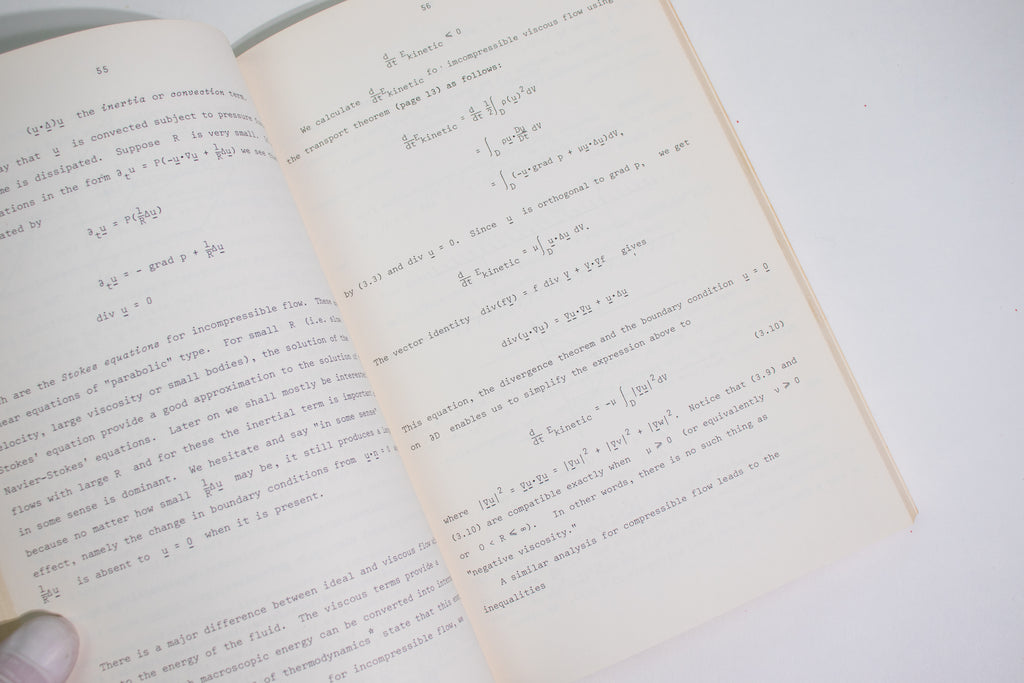 55
(u•∆)u the inertia or convection term.
ay that u is convected subject to pressure
me is dissipated. Suppose R is very small.
ations in the form ∂ₜu = P(-u•∇u + 1/R ∆u) we see
ated by
∂ₜu = P(1/R ∆u)
∂ₜu = - grad p + 1/R ∆u
div u = 0
h are the Stokes equations for incompressible flow. These
near equations of "parabolic" type. For small R (i.e.
locity, large viscosity or small bodies), the solution of the
Stokes' equation provide a good approximation to the solution of
Navier-Stokes' equations. Later on we shall mostly be interested
flows with large R and for these the inertial term is important
in some sense is dominant. We hesitate and say "in some sense"
because no matter how small 1/R ∆u may be, it still produces a
effect, namely the change in boundary conditions from u•n = 0
1/R ∆u is absent to u = 0 when it is present.
There is a major difference between ideal and viscous flow
to the energy of the fluid. The viscous terms provide a
macroscopic energy can be converted into
of thermodynamics* state that this
for incompressible flow,
56
d/dt E kinetic ⩽ 0
We calculate d/dt E kinetic fo· imcompressible viscous flow using
the transport theorem (page 13) as follows:
d/dt E kinetic = d/dt 1/2 ∫_D ρ(u)² dV
= ∫_D ρu•Du/Dt dV
= ∫_D (-u•grad p + μu•∆u)dV,
by (3.3) and div u = 0. Since u is orthogonal to grad p, we get
d/dt E kinetic = μ∫_D u•∆u dV.
The vector identity div(fV) = f div V + V•∇f gives
div(u•∇u) = ∇u•∇u + u•∆u
This equation, the divergence theorem and the boundary condition u = 0
on ∂D enables us to simplify the expression above to
(3.10)
d/dt E kinetic = -μ ∫_D |∇u|² dV
where |∇u|² = ∇u•∇u = |∇u|² + |∇v|² + |∇w|². Notice that (3.9) and
(3.10) are compatible exactly when μ ⩾ 0 (or equivalently ν ⩾ 0
or 0 < R ⩽ ∞). In other words, there is no such thing as
"negative viscosity."
A similar analysis for compressible flow leads to the
inequalities